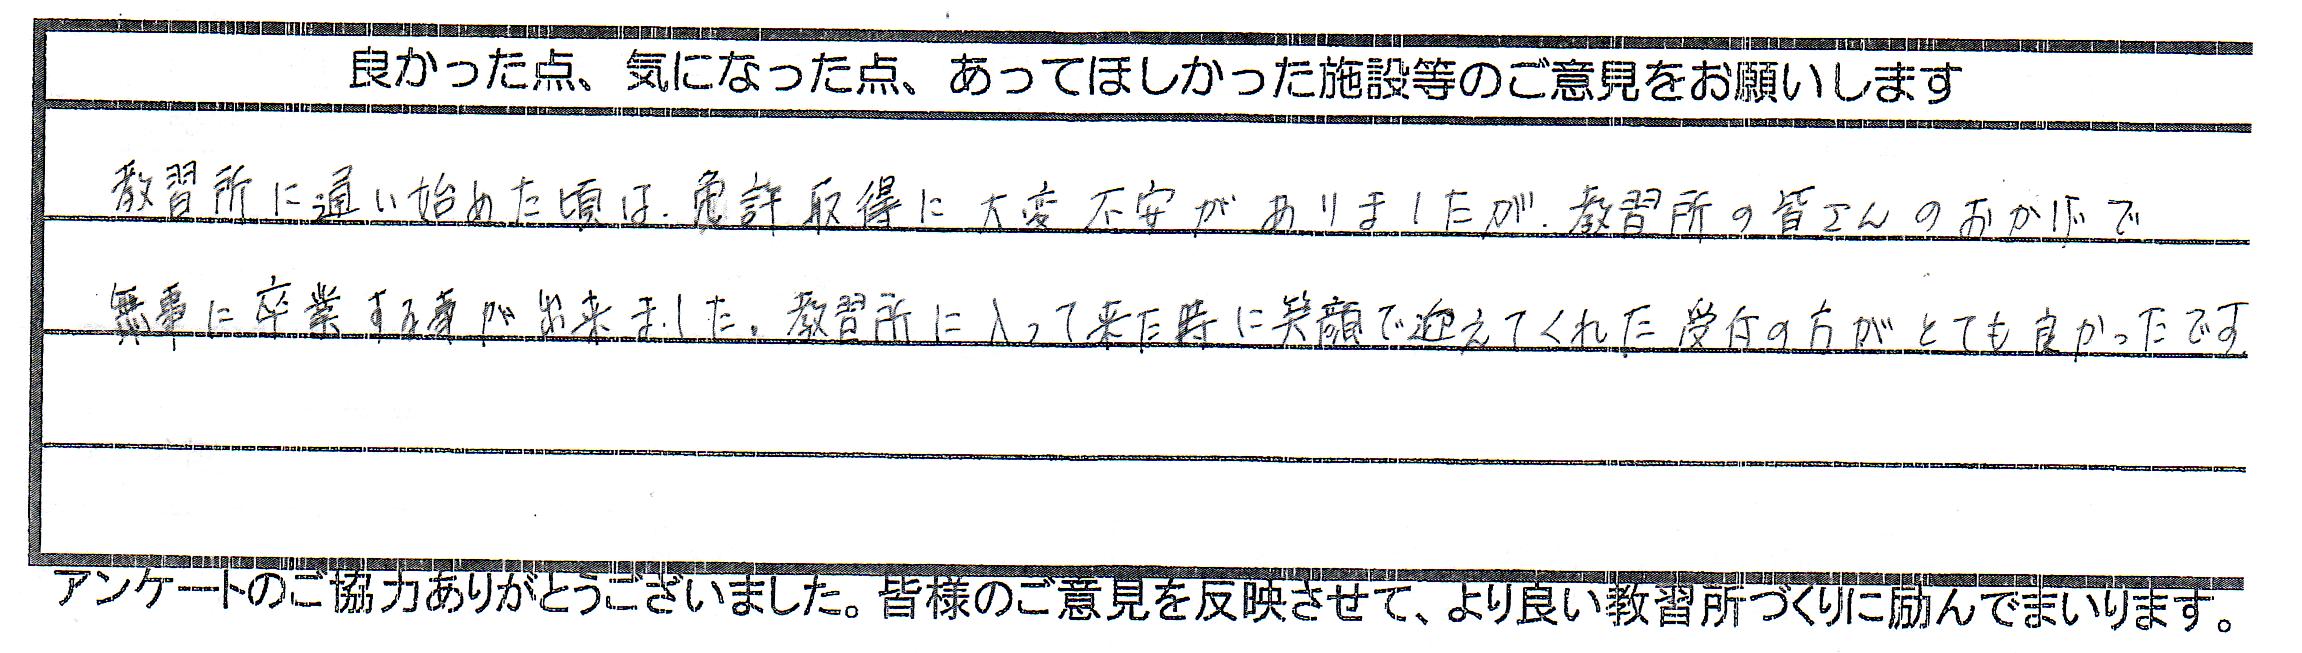 良かった点、気になった点、あってほしかった施設等のご意見をお願いします
教習所に通い始めた頃は、免許取得に大変不安がありましたが、教習所の皆さんのおかげで
無事に卒業する事が出来ました。教習所に入って来た時に笑顔で迎えてくれた受付の方がとても良かったです。
アンケートのご協力ありがとうございました。皆様のご意見を反映させて、より良い教習所づくりに励んでまいります。